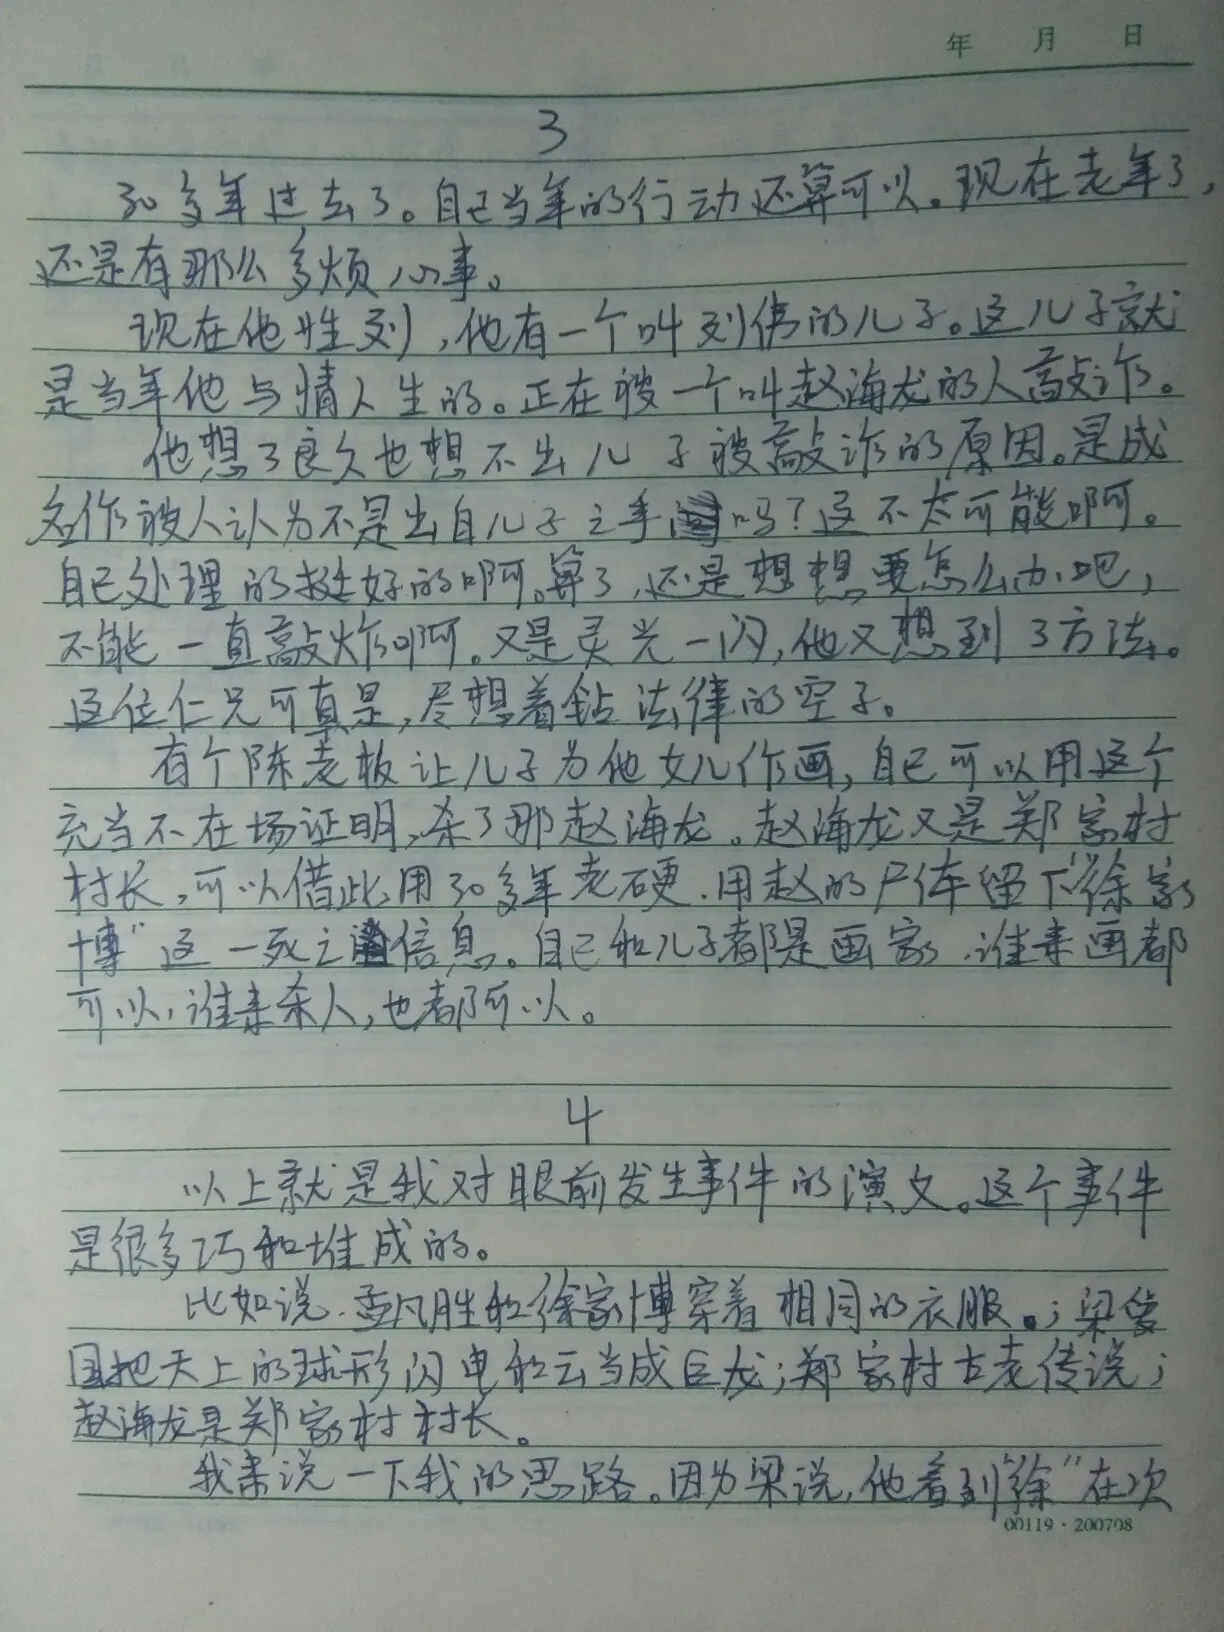 年 月 日
3
30多年过去了。自己当年的行动还算可以。现在老年了,
还是有那么多烦心事。
现在他姓刘,他有一个叫刘伟的儿子。这儿子就
是当年他与情人生的。正在被一个叫赵海龙的人敲诈。
他想了良久也想不出儿子被敲诈的原因。是成
名作被人认为不是出自儿子之手吗?这不太可能啊。
自己处理的挺好的啊。算了,还是想想要怎么办吧,
不能一直敲炸啊。又是灵光一闪,他又想到了方法。
这位仁兄可真是,尽想着钻法律的空子。
有个陈老板让儿子为他女儿作画,自己可以用这个
充当不在场证明,杀了那赵海龙。赵海龙又是郑家村
村长,可以借此用30多年老硬.用赵的尸体留下“徐家
博”这一死亡信息。自己和儿子都是画家.谁来画都
可以,谁来杀人,也都可以。
4
以上就是我对眼前发生事件的演文。这个事件
是很多巧和堆成的。
比如说.孟凡胜和徐家博穿着相同的衣服。;梁爱
国把天上的球形闪电和云当成巨龙;郑家村古老传说;
赵海龙是郑家村村长。
我来说一下我的思路。因为梁说,他看到“徐”在次
00119·200708